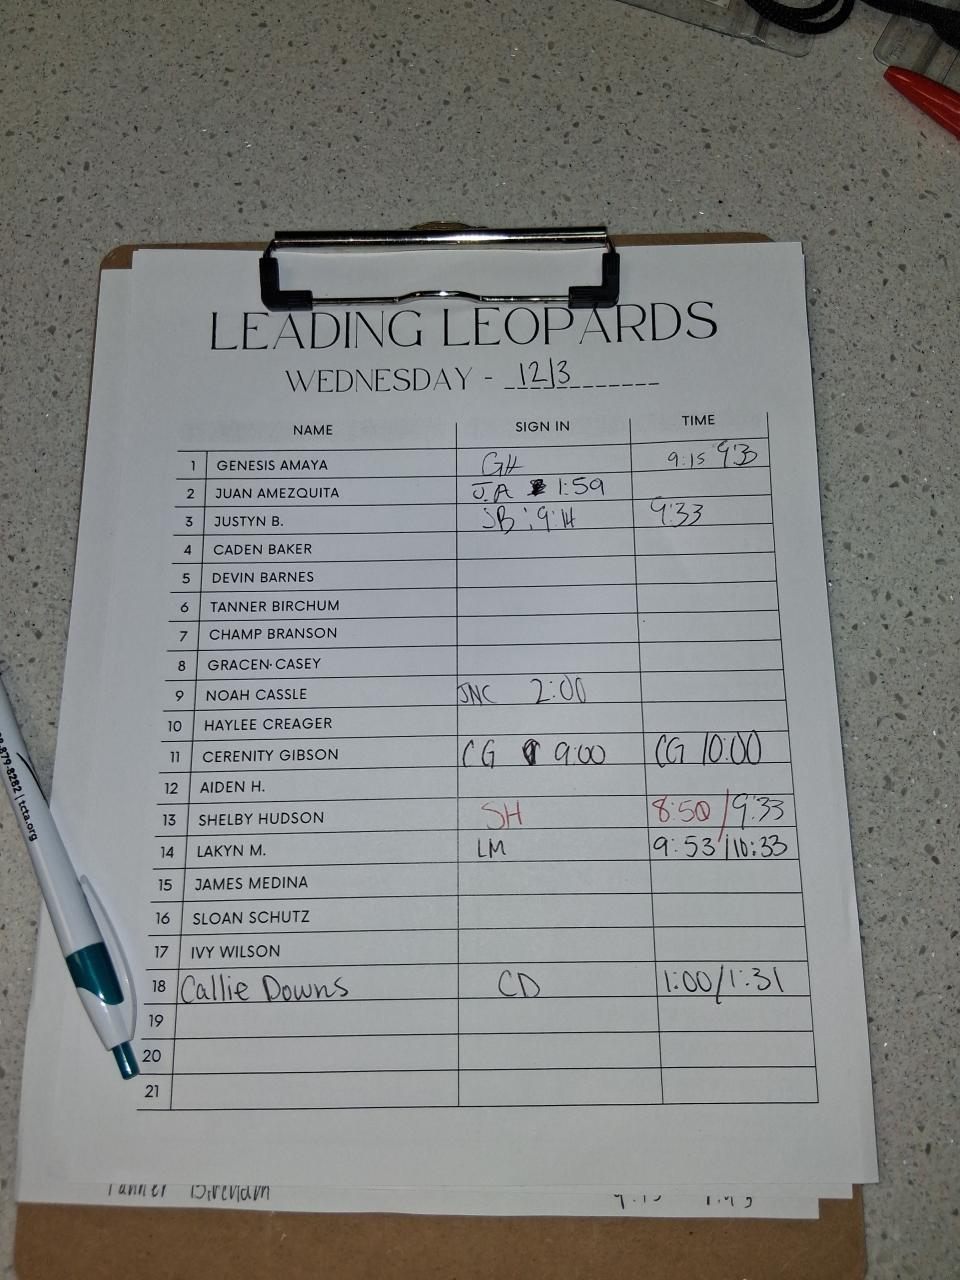 LEADING LEOPARDS
WEDNESDAY - 12/3
NAME SIGN IN TIME
1 GENESIS AMAYA GH 9:15 9:33
2 JUAN AMEZQUITA J.A 1:59
3 JUSTYN B. JB : 9:14 9:33
4 CADEN BAKER
5 DEVIN BARNES
6 TANNER BIRCHUM
7 CHAMP BRANSON
8 GRACEN CASEY
9 NOAH CASSLE JNC 2:00
10 HAYLEE CREAGER
11 CERENITY GIBSON CG 9:00 CG 10:00
12 AIDEN H.
13 SHELBY HUDSON SH 8:50 / 9:33
14 LAKYN M. LM 9:53 / 10:33
15 JAMES MEDINA
16 SLOAN SCHUTZ
17 IVY WILSON
18 Callie Downs CD 1:00/1:31
19
20
21
879-8282 | tcta.org
Tanner